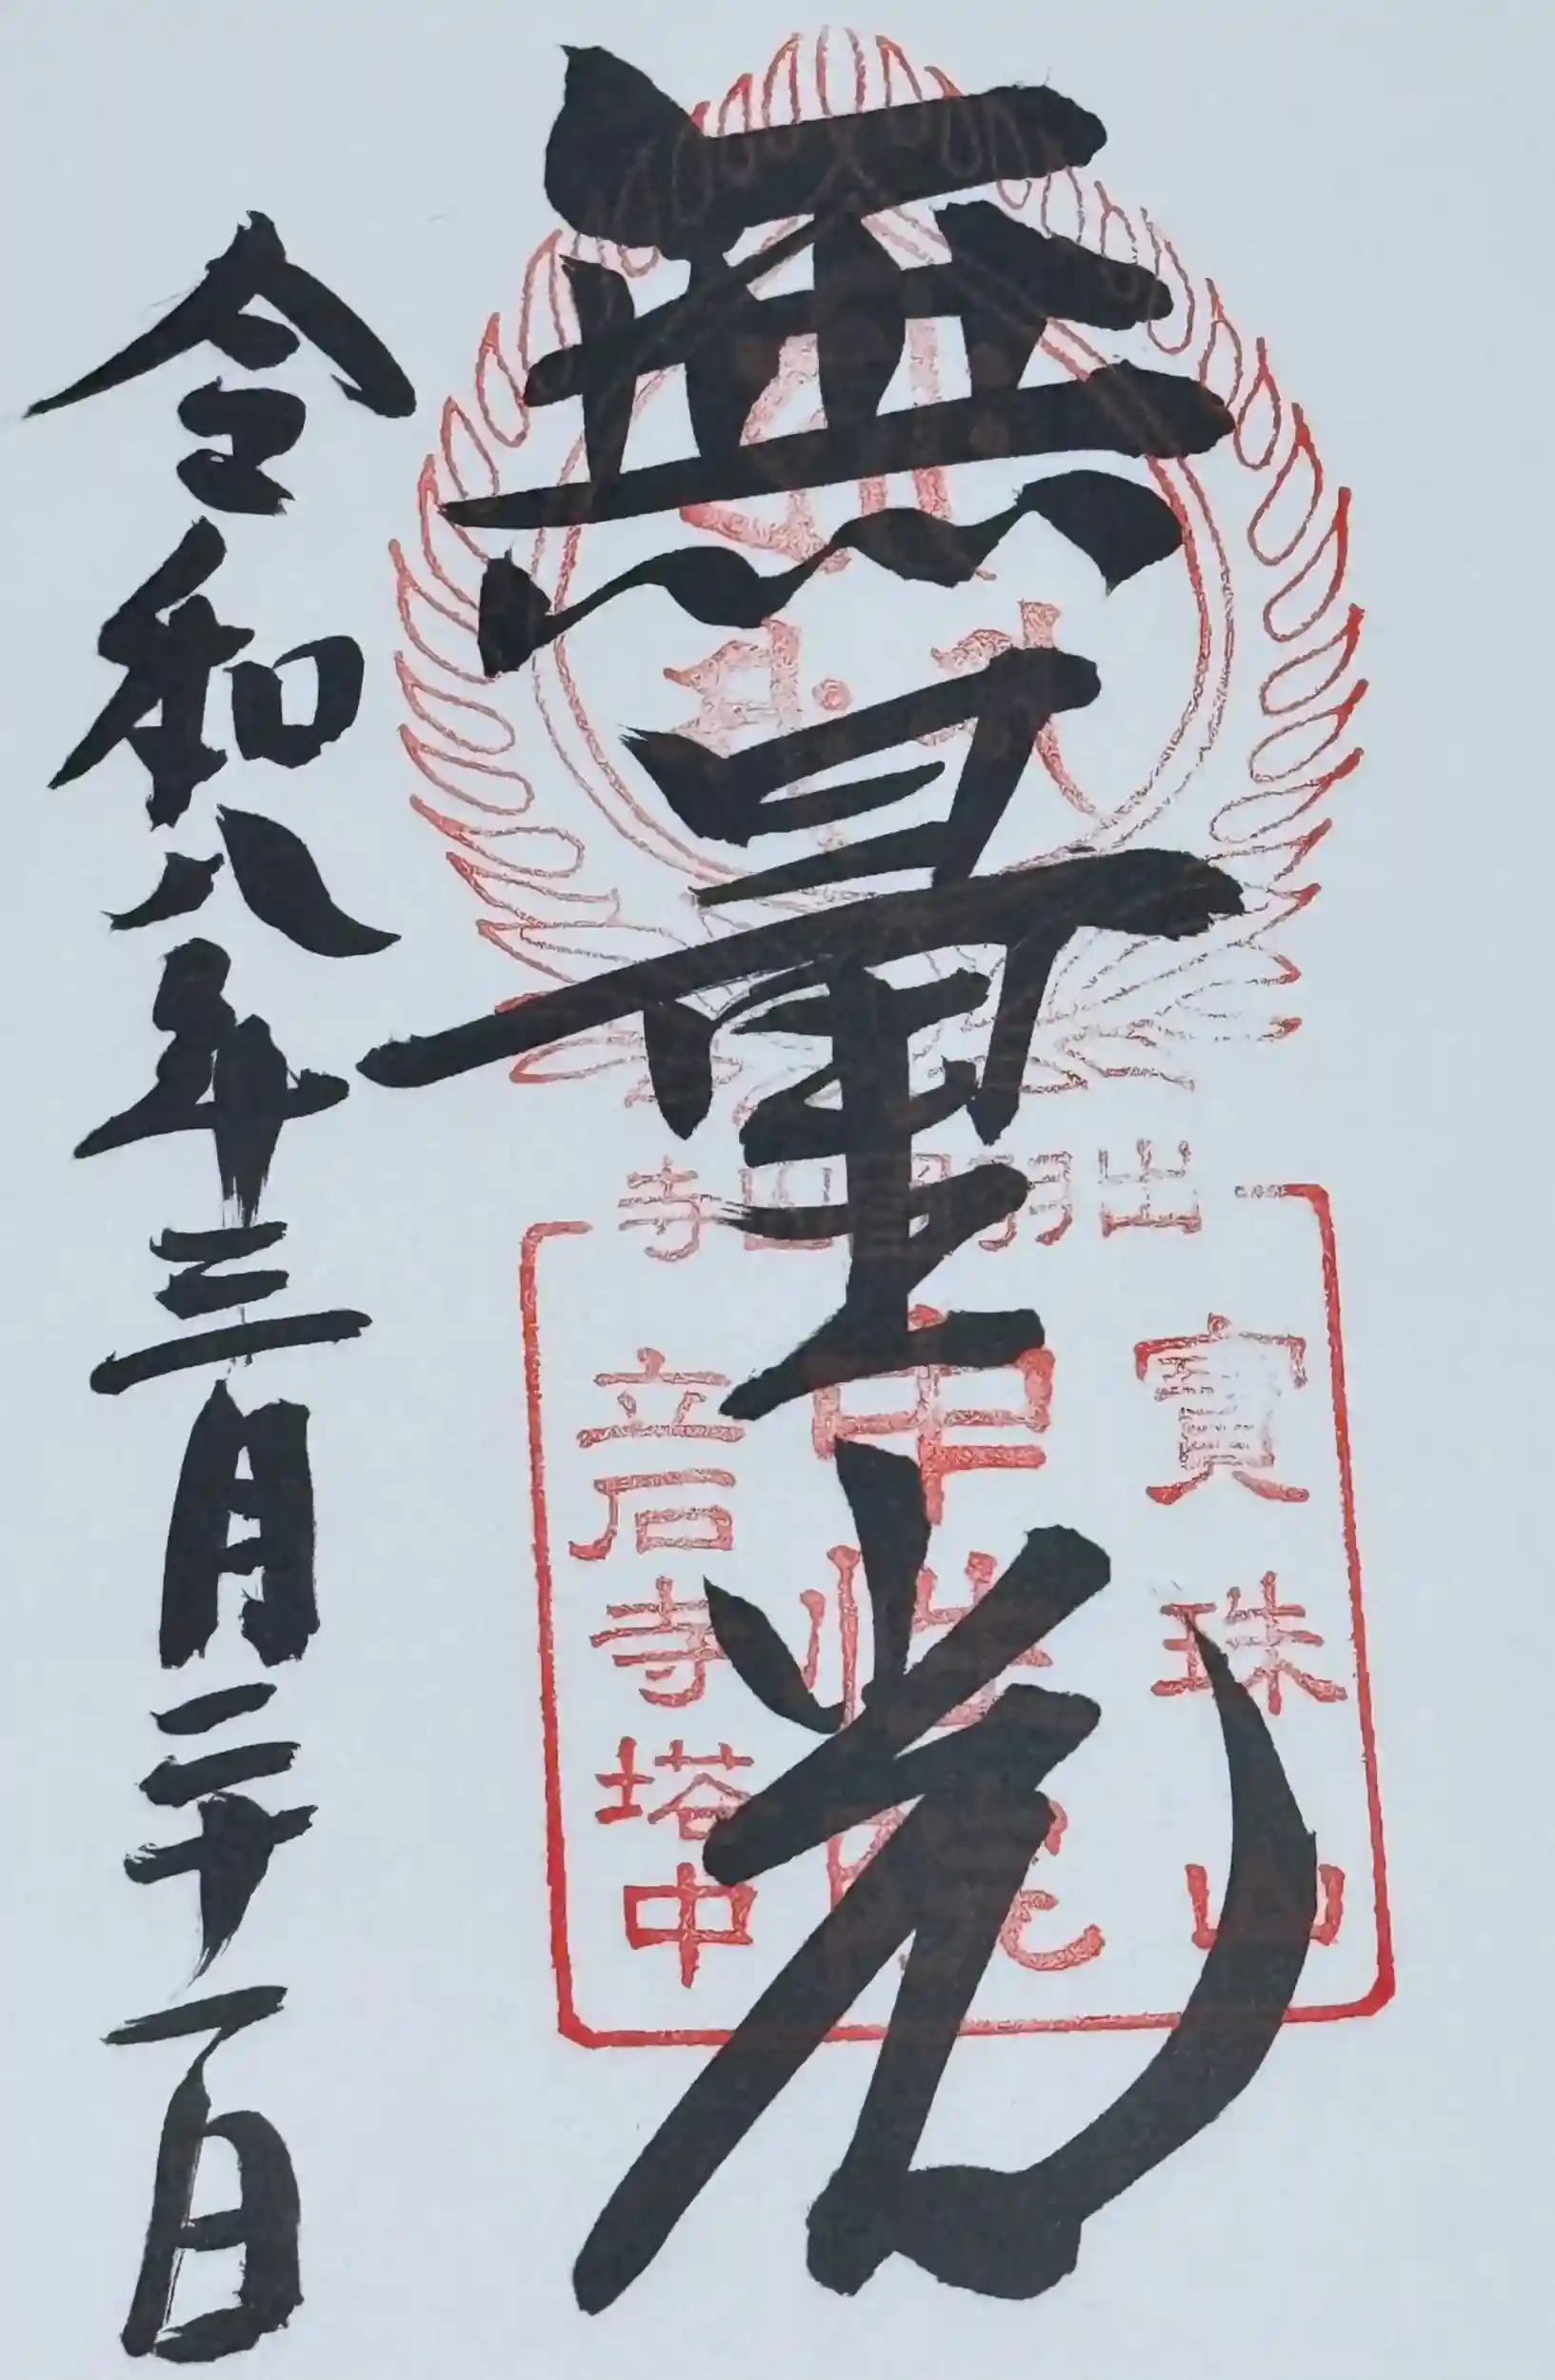 無量光
出羽國山寺
寶珠山
中性院
立石寺塔中
令和八年三月二十一日